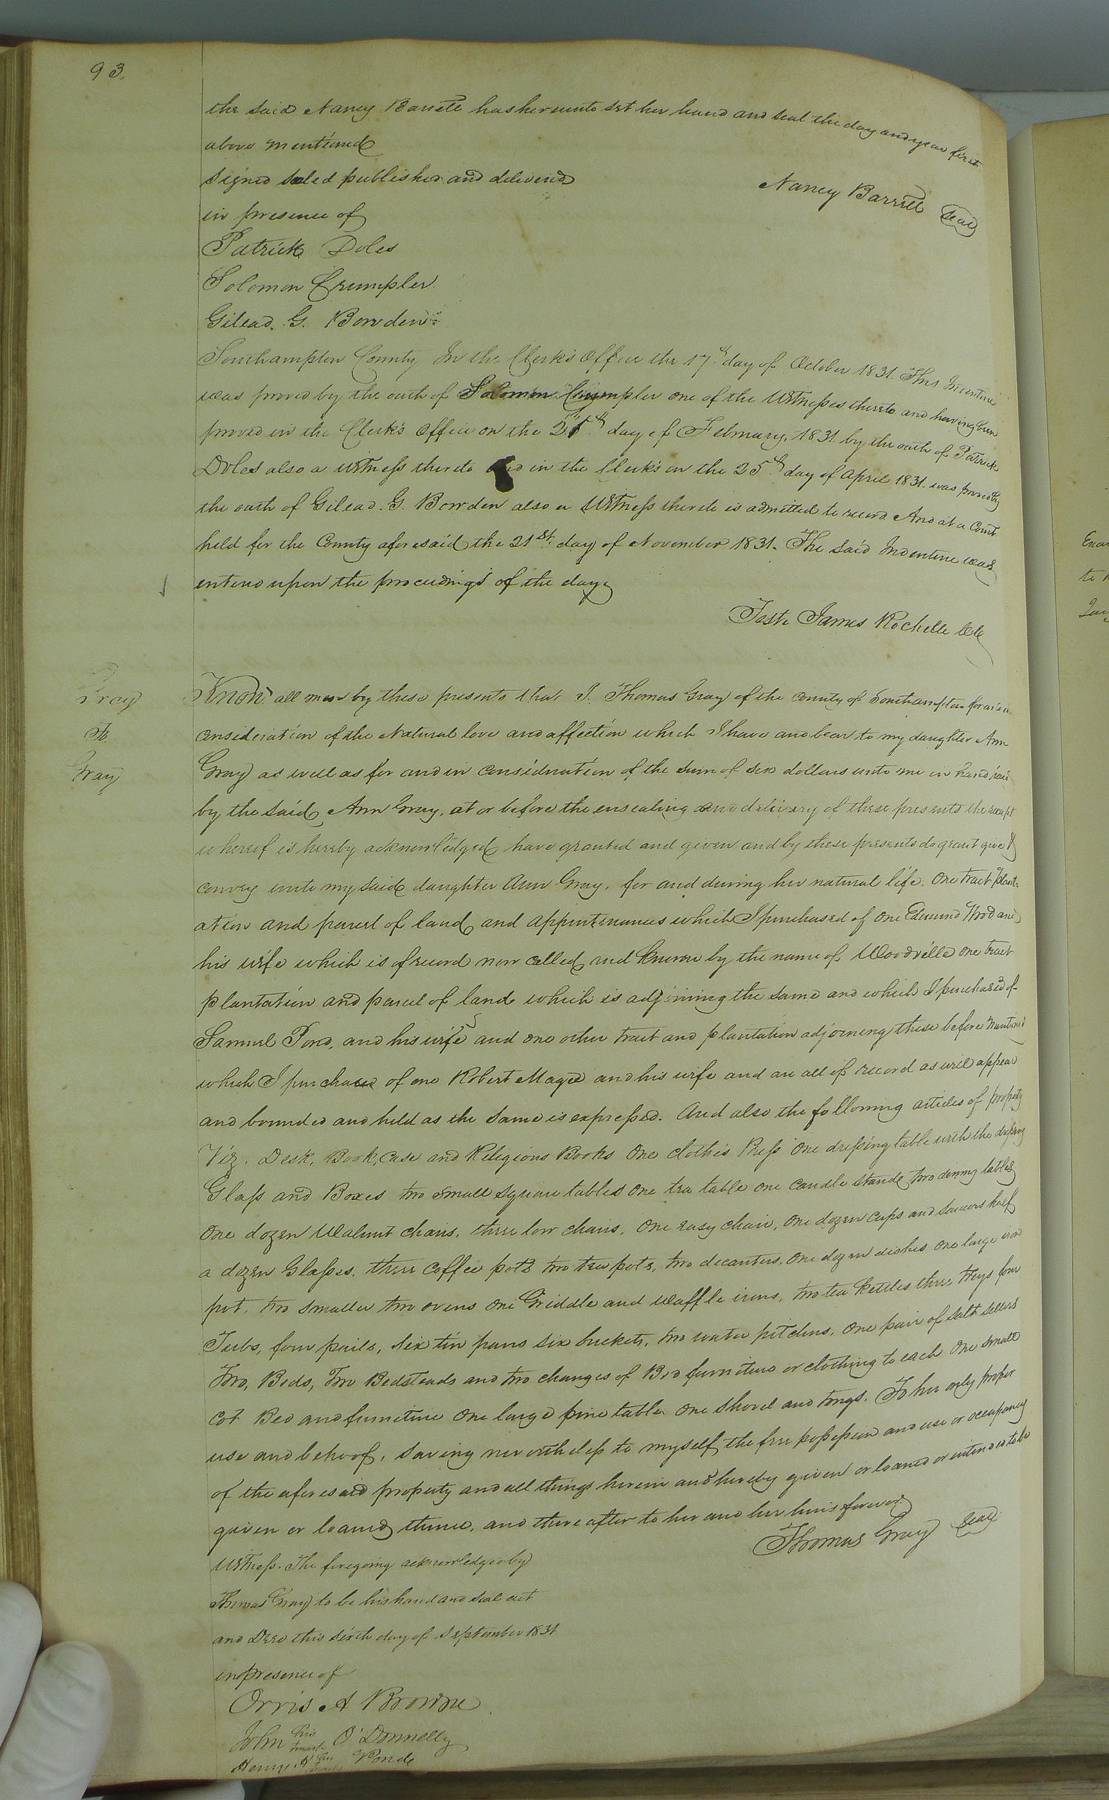 93.
the said Nancy Barrett has hereunto set her hand and seal the day and year first
above mentioned
signed sealed published and delivered
Nancy Barrett Seal
in presence of
Patrick Doles
Solomon Crumpler
Gilead. G. Bowden
Southampton County In the Clerk's Office the 17th day of October 1831 This Indenture
was proved by the oath of Solomon Crumpler one of the Witnesses thereto and having been
proved in the Clerk's Office on the 25th day of February, 1831 by the oath of Patrick
Doles also a witness thereto and in the Clerk's on the 25th day of April 1831. was proved by
the oath of Gilead. G. Bowden also a Witness thereto is admitted to record And at a Court
held for the County aforesaid the 21st day of November 1831. The said Indenture was
entered upon the proceedings of the day
Teste James Rochelle
Gray
To
Gray
Know all men by these presents that I. Thomas Gray of the county of Southampton for & in
consideration of the Natural love and affection which I have and bear to my daughter Ann
Gray as well as for and in consideration of the sum of six dollars unto me in hand paid
by the said, Ann Gray, at or before the ensealing and delivery of these presents the receipt
whereof is hereby acknowledged have granted and given and by these presents do grant give &
convey unto my said daughter Ann Gray, for and during her natural life. One tract Plant-
ation and parcel of land and appurtenances which I purchased of one Edmund Wood and
his wife which is of record now called and known by the name of, Woodville one tract
plantation and parcel of land which is adjoining the same and which I purchased of
Samuel Ford, and his wife and one other tract and plantation adjoining these before mentioned
which I purchased of one Robert Magee and his wife and are all of record as will appear
and bounded and held as the same is expressed. And also the following articles of property
Viz. Desk, Book, case and Religious Books One clothes Press One dressing table with the dressing
Glass and Boxes two small square tables one tea table one candle stand two dining tables
One dozen Walnut chairs, three low chairs, One easy chair, One dozen cups and saucers half
a dozen Glasses, three coffee pots two tea pots, two decanters, One dozen dishes One large iron
pot, two smaller two ovens One Griddle and Waffle irons, two tea kettles three Keys four
Tubs, four pails, six tin pans six buckets, two water pitchers, One pair of salt sellers
Two, Beds, Two Bedsteads and two changes of Bed furniture or clothing to each One small
cot Bed and furniture One large pine table One shovel and tongs. To her only proper
use and behoof, saving nevertheless to myself the free possession and use or occupancy
of the aforesaid property and all things herein and hereby given or loaned or intended to be
given or loaned thence, and thereafter to her and her heirs forever
Thomas Gray Seal
Witness. The foregoing acknowledged by
Thomas Gray to be his hand and seal act
and Deed this sixth day of September 1831
in presence of
Orris A Browne
John his mark O'Donnelly